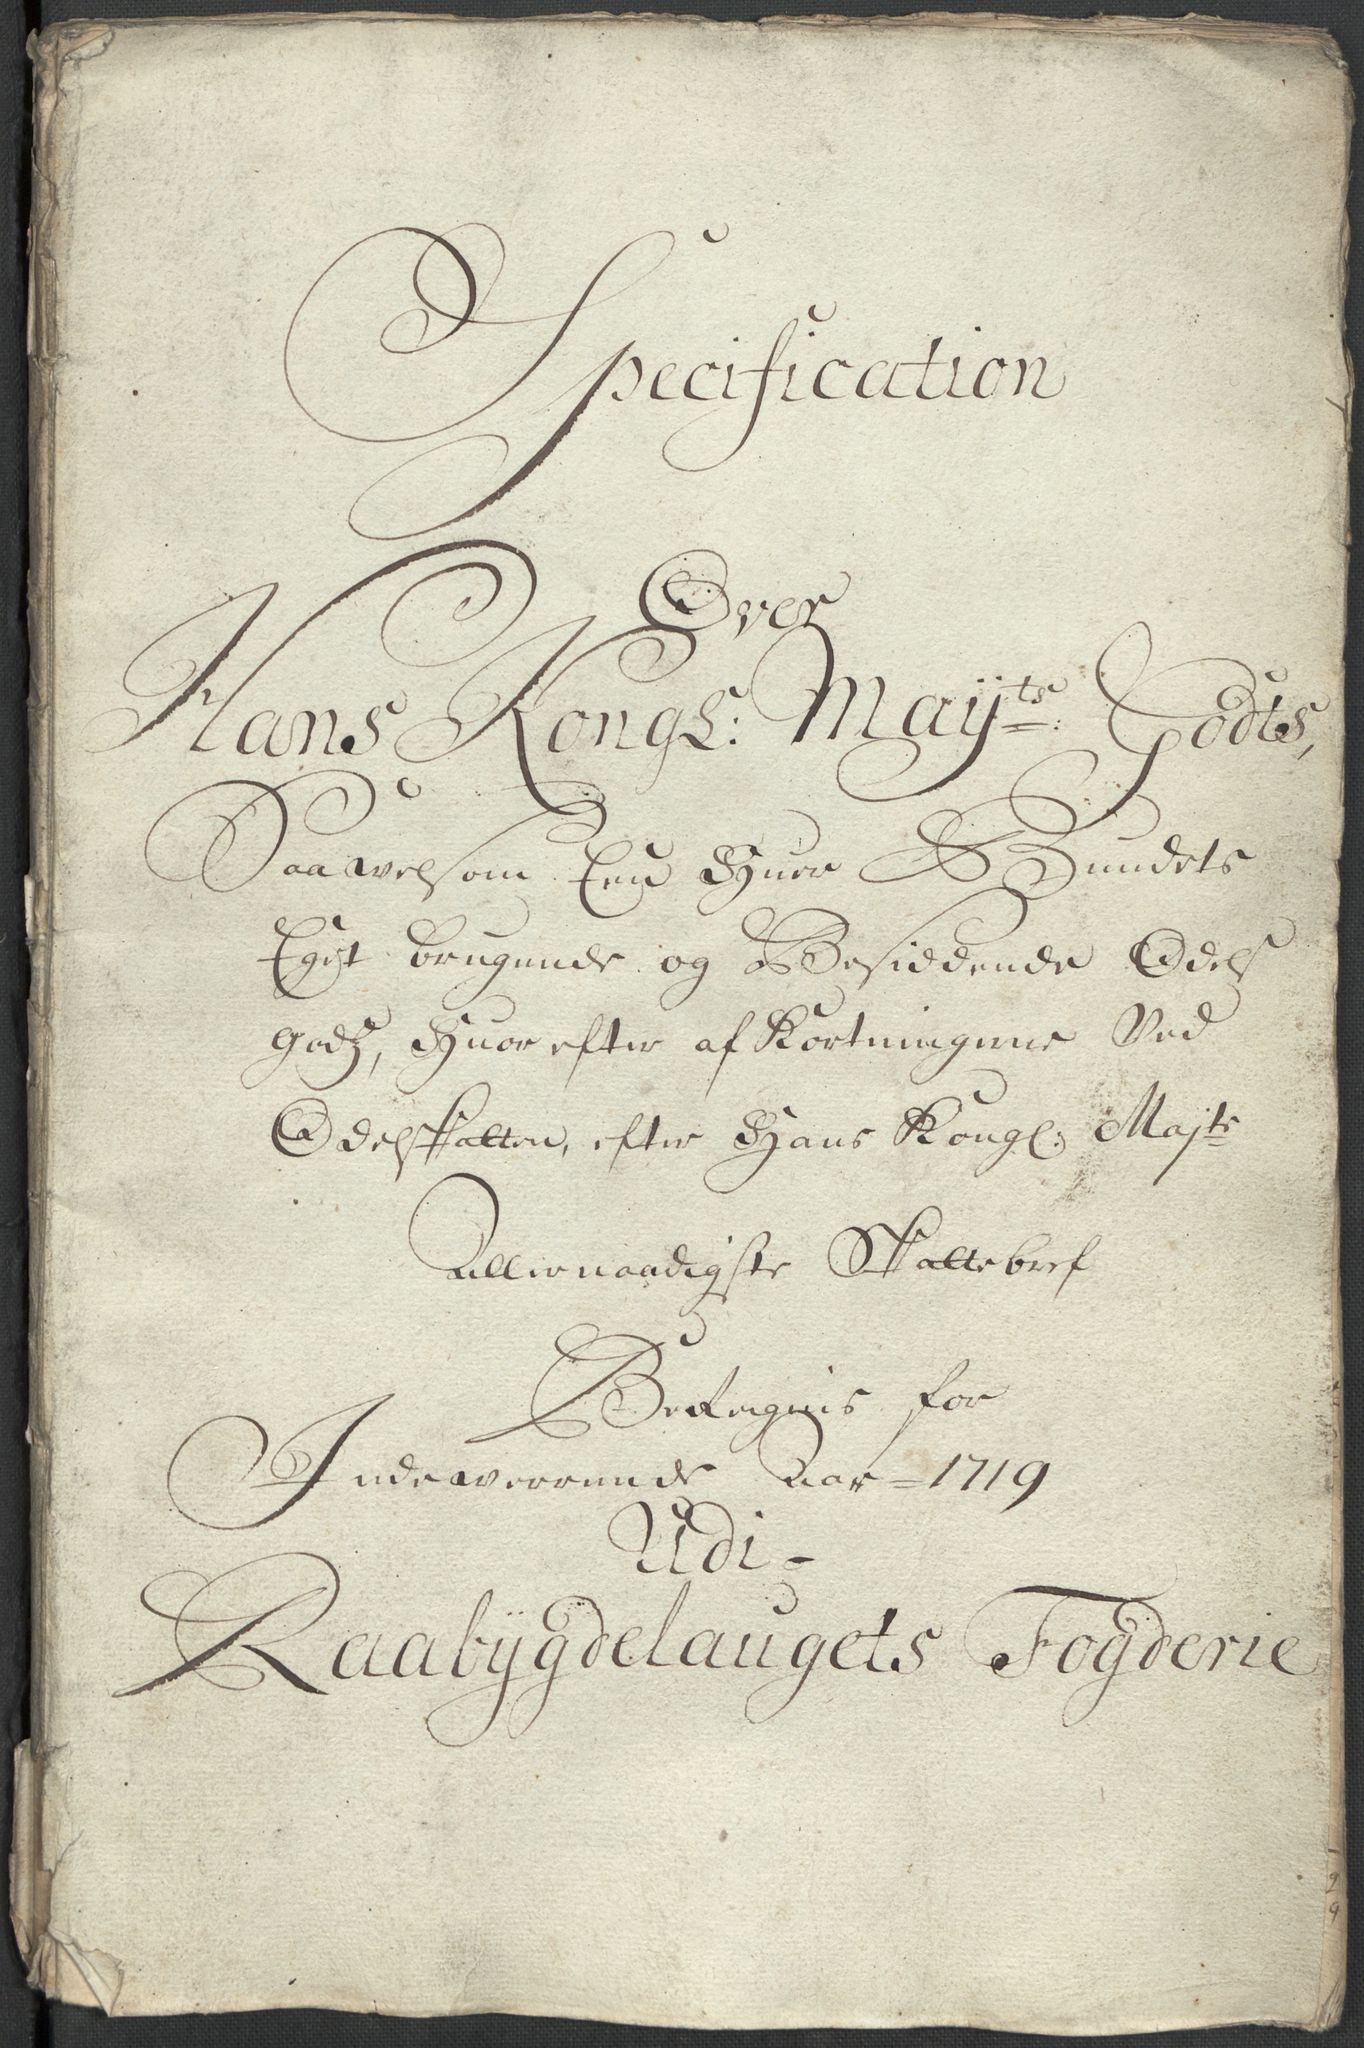 Specification
Over
Hans Kongl: Mayts: Godts,
Saavelsom Een Hver Bundets
Eget brugende og Besiddende Odels
godz, Huorefter afKortningerne Ved
Odelskatten, efter Hans Kongl: Majts
Allernaadigste Skattebref
Beregnis for
Indeværende Aar = 1719
Udi -
Raabÿgdelaugets Fogderie